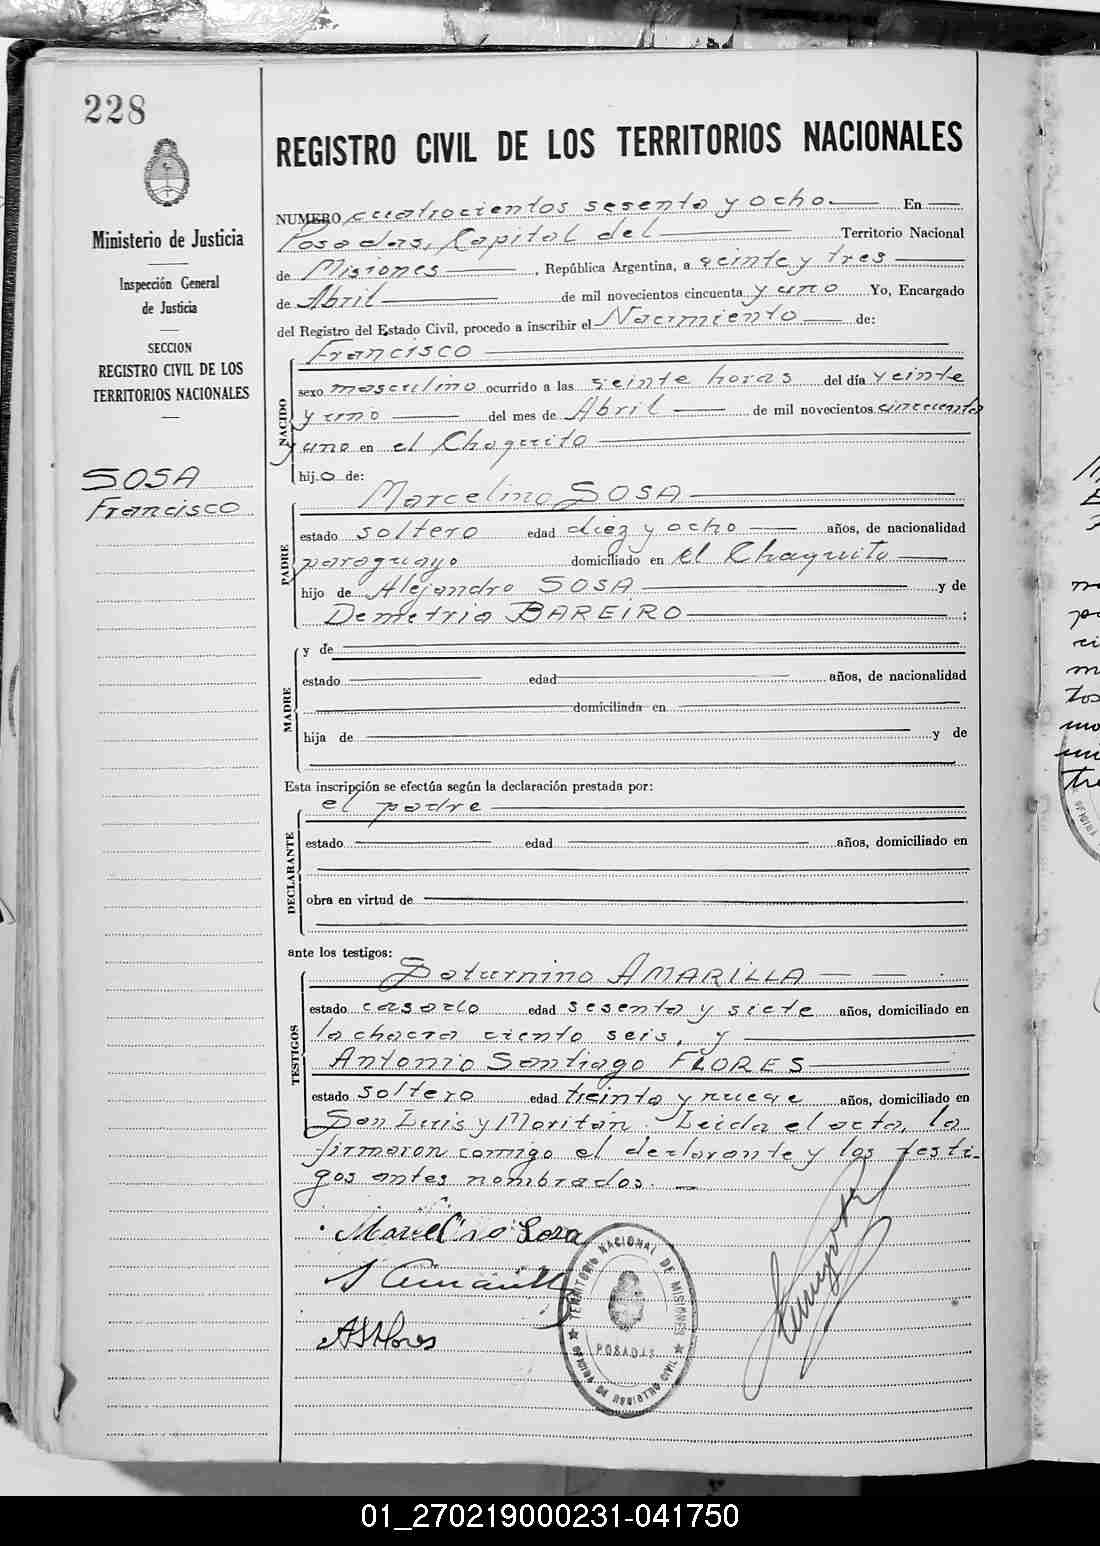 228
Ministerio de Justicia
Inspección General
de Justicia
SECCION
REGISTRO CIVIL DE LOS
TERRITORIOS NACIONALES
SOSA
Francisco
REGISTRO CIVIL DE LOS TERRITORIOS NACIONALES
NUMERO cuatrocientos sesenta y ocho. En
Posadas, Capital del Territorio Nacional
de Misiones, República Argentina, a veinte y tres
de Abril de mil novecientos cincuenta y uno Yo, Encargado
del Registro del Estado Civil, procedo a inscribir el Nacimiento de:
NACIDO
Francisco
sexo masculino ocurrido a las veinte horas del día veinte
y uno del mes de Abril de mil novecientos cincuenta
y uno en el Chaquito
hijo de:
PADRE
Marcelino SOSA
estado soltero edad diez y ocho años, de nacionalidad
paraguayo domiciliado en el Chaquito
hijo de Alejandro SOSA y de
Demetria BAREIRO
MADRE
y de
estado edad años, de nacionalidad
domiciliada en
hija de y de
Esta inscripción se efectúa según la declaración prestada por:
DECLARANTE
el padre
estado edad años, domiciliado en
obra en virtud de
ante los testigos:
TESTIGOS
Saturnino AMARILLA
estado casado edad sesenta y siete años, domiciliado en
la chacra ciento seis, y
Antonio Santiago FLORES
estado soltero edad treinta y nueve años, domiciliado en
San Luis y Moritán. Leida el acta, la
firmaron comigo el declarante y los testi-
gos antes nombrados.
Marcelino Sosa
S Amarilla
ASFlores
TERRITORIO NACIONAL DE MISIONES
POSADAS
OFICINA DE REGISTRO CIVIL
01_270219000231-041750